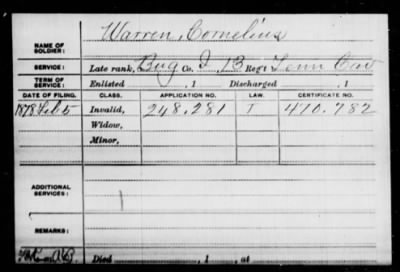 Warren, Cornelius
NAME OF SOLDIER:
SERVICE: Late rank, Bug Co. I, 13 Reg't Tenn Cav
TERM OF SERVICE: Enlisted , 1 Discharged , 1
DATE OF FILING. CLASS. APPLICATION NO. LAW. CERTIFICATE NO.
1878 Feb 5 Invalid, 248,281 I 410.782
Widow,
Minor,
ADDITIONAL SERVICES:
REMARKS:
Died , 1 , at